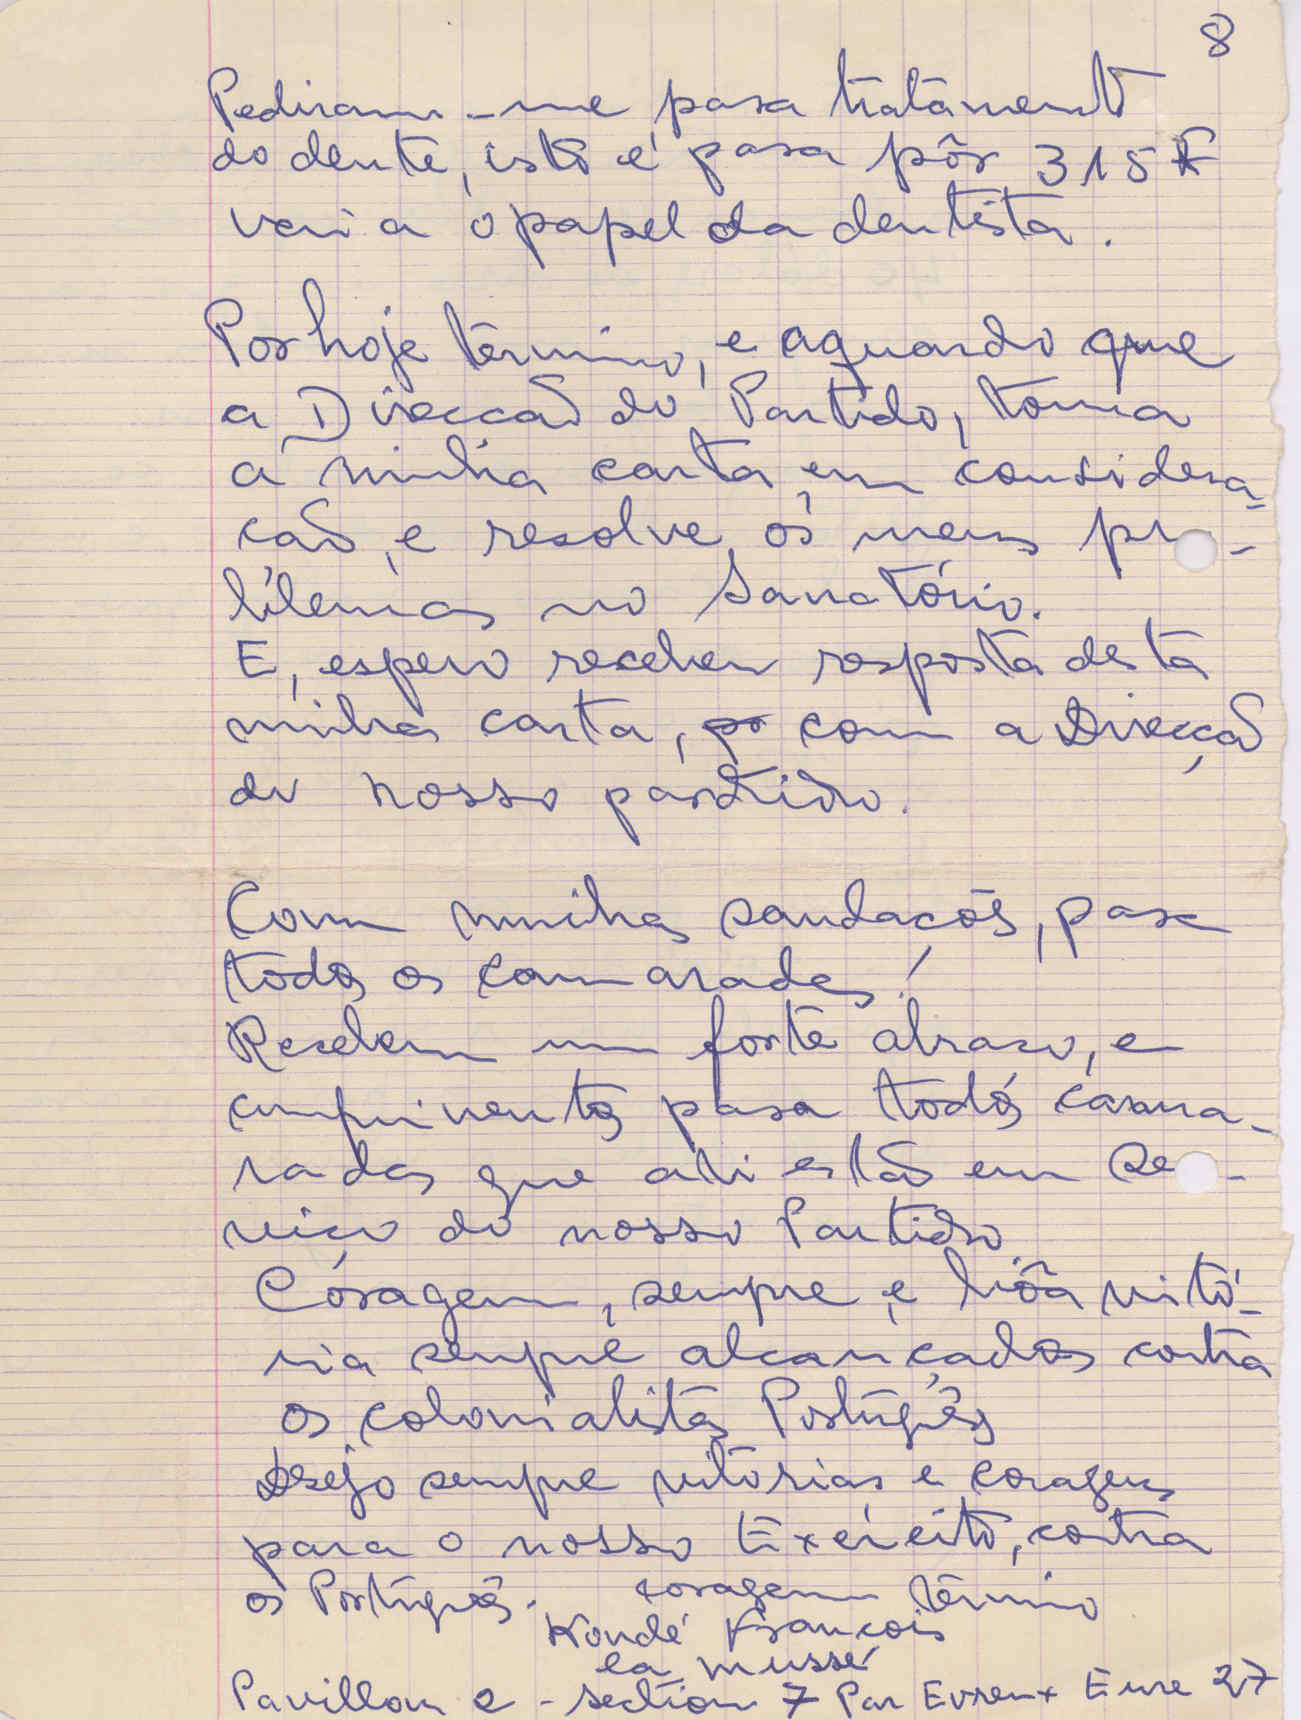 8
Pediram-me para tratamento
do dente, isto é para pôr 315 F
veri a o papel da dentista.
Por hoje término, e aguardo que
a Direccão do Partido, toma
a minha carta em considera-
cão, e resolve os meus pr -
blemas no Sanatório.
E, espero receber resposta desta
minha carta, com a Direcção
do nosso partido.
Com minhas saudacões, para
todos os camarades!
Recebem um forte abraco, e
cumprimentos para todós cama-
radas que ali estão em se -
vico do nosso Partido.
Córagem, sempre e bôa vitó-
ria sempre alcançados contra
os colonialistas Portuguës
Desejo sempre vitórias e coragens
para o nosso Exército, contra
os Portuguës. coragem término
Kondé Francois
la mussé
Pavillon 2 - section 7 Par Evreux Eure 27